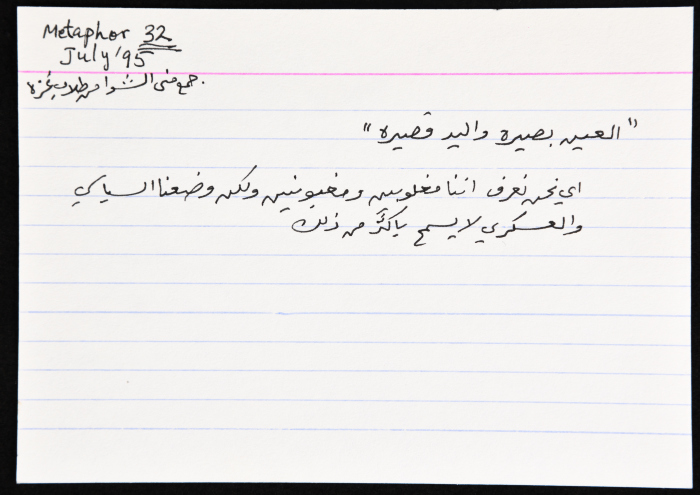 Metaphor 32
July '95
جمع منى الشوا من طلاب غزة.
"العين بصيره واليد قصيره"
اي نحن نعرف اننا مغلوبين ومغبونين ولكن وضعنا السياسي
والعسكري لا يسمح بأكثر من ذلك